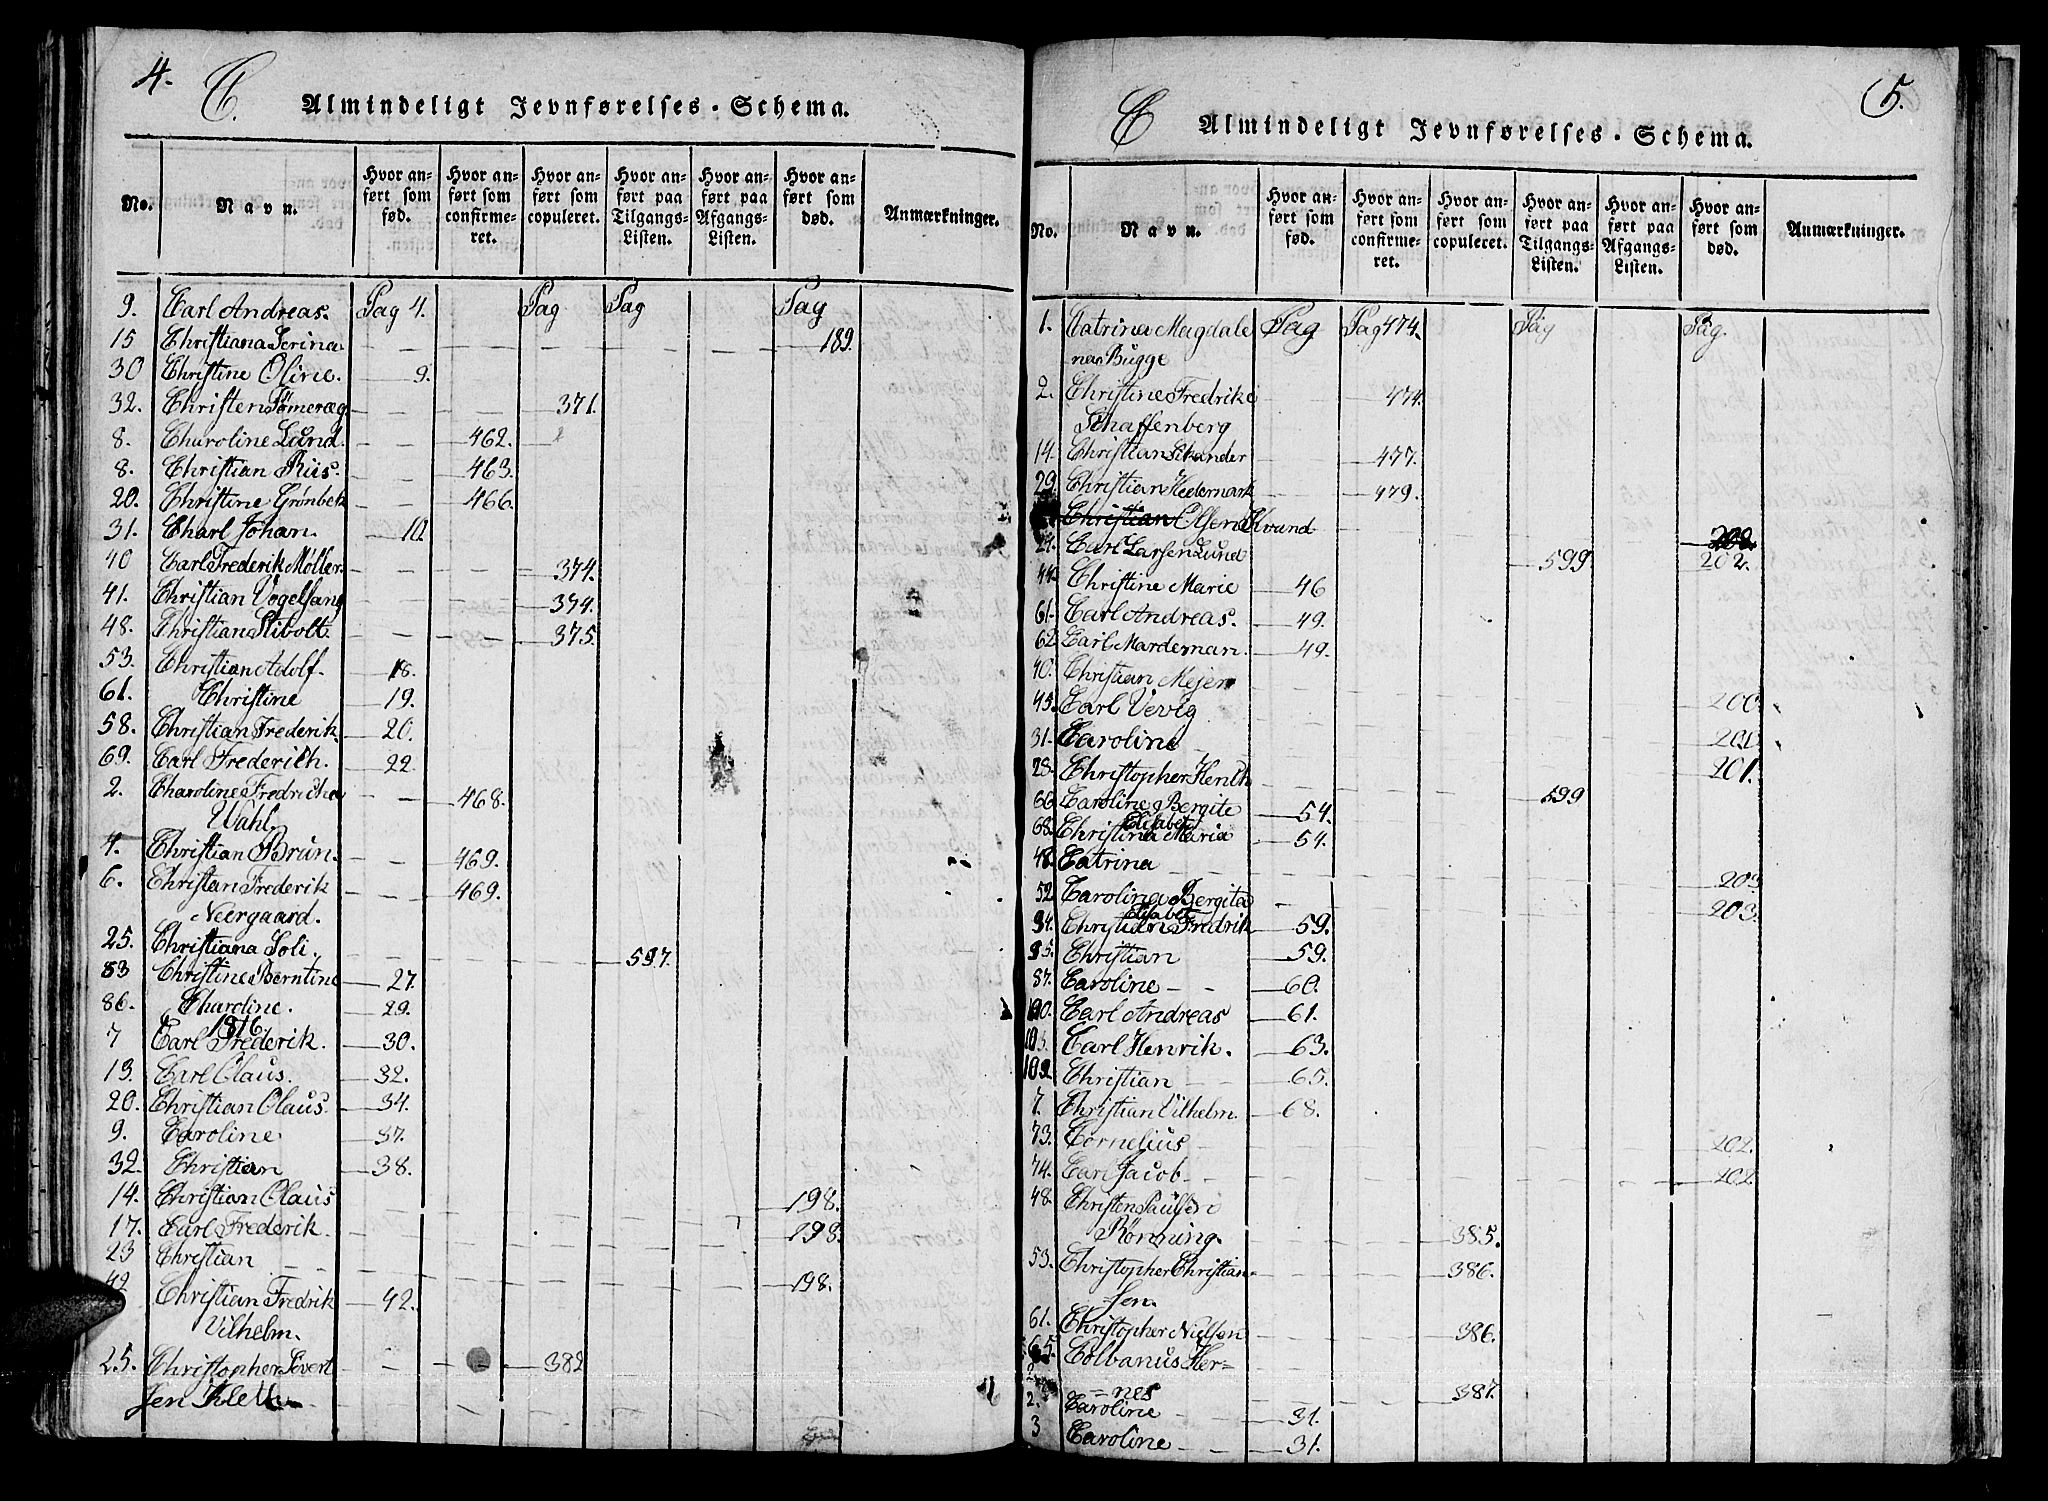 4.
C.
Almindeligt Jevnførelses-Schema.
No.
Navn.
Hvor anført som fød.
Hvor anført som confirmeret.
Hvor anført som copuleret.
Hvor anført paa Tilgangs-Listen.
Hvor anført paa Afgangs-Listen.
Hvor anført som død.
Anmærkninger.
9. Carl Andreas. Pag 4. Pag Pag Pag
15 Christiana Serina 189.
30 Christine Oline. 9.
32. Christen 371.
8. Charoline Lund. 462.
8. Christian Riis. 463.
20. Christine Grønbek 466.
31. Charl Johan. 10.
40 Carl Frederik Møller. 374.
41. Christian Vogelsang 374.
48. Christian Stibolt. 375.
53. Christian Adolf. 18.
61. Christine 19.
58. Christian Frederik. 20.
69. Carl Frederich. 22.
2. Charoline Fredricha 468.
Wahl.
4. Christian Brun. 469.
6. Christan Frederik 469.
Neergaard.
25. Christiana Soli. 597.
83 Christine Berntine 27.
86. Charoline. 29.
1816.
7 Carl Frederik. 30.
13. Carl Claus. 32.
20. Christian Olaus. 34.
9. Caroline 37.
32. Christian 38.
14. Christian Olaus 198.
17. Carl Frederik. 198.
23 Christian 198.
42 Christian Fredrik 42.
Vilhelm.
25. Christopher Sivert 382
sen Klett
5.
C
Almindeligt Jevnførelses-Schema.
No.
Navn.
Hvor anført som fød.
Hvor anført som confirmeret.
Hvor anført som copuleret.
Hvor anført paa Tilgangs-Listen.
Hvor anført paa Afgangs-Listen.
Hvor anført som død.
Anmærkninger.
1. Catrina Magdale Pag Pag 474. Pag Pag.
na Bugge
2. Christine Fredrike 474.
Schaffenberg
14. Christian Skander 477.
29. Christian Hedemark 479.
Christian Olsen Svund 202.
24. Carl Larsen Lund 599 202.
44. Christine Marie 46
61. Carl Andreas. 49.
62 Carl Mardeman. 49.
40. Christian Mejer
45. Carl Vevig 200.
31. Caroline 201
28. Christopher Henth 201.
66 Caroline Bergite 54. 599
Elisabet
68. Christina Maria 54.
48. Catrina 203
52 Carolina Bergita 203.
Elisabet
94. Christian Fredrik 59.
95. Christian 59.
87. Caroline 60.
100. Carl Andreas 61.
103. Carl Henrik. 63.
109. Christian 65.
7. Christian Vilhelm. 68.
73. Cornelius 202.
74. Carl Jacob 202.
48. Christen Paulsen
Rønning. 385.
53. Christopher Christian= 386.
sen.
61. Christopher Nielsen 386.
65. Colbanus Her=
=nes 387.
2. Caroline 31.
3 Caroline 31.